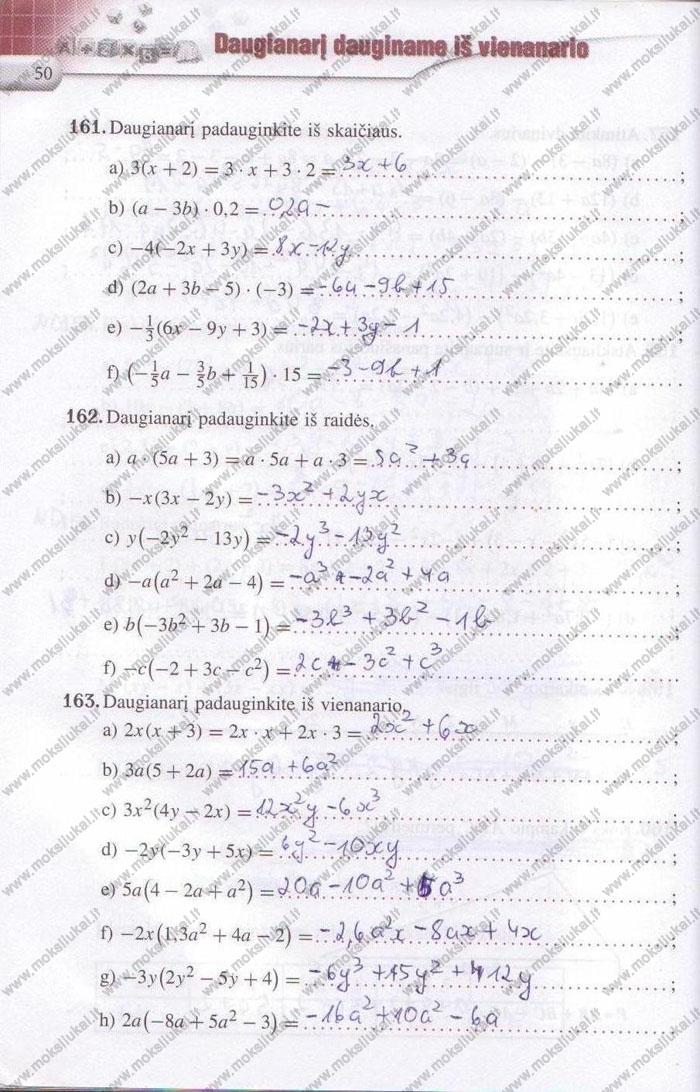 Daugianarį dauginame iš vienanario
50
161. Daugianarį padauginkite iš skaičiaus.
a) 3(x + 2) = 3 · x + 3 · 2 = 3x + 6 ;
b) (a − 3b) · 0,2 = 0,2a − ;
c) −4(−2x + 3y) = 8x − 12y ;
d) (2a + 3b − 5) · (−3) = −6a − 9b + 15 ;
e) −1/3(6x − 9y + 3) = −2x + 3y − 1 ;
f) (−1/5a − 3/5b + 1/15) · 15 = −3 − 9b + 1 .
162. Daugianarį padauginkite iš raidės.
a) a · (5a + 3) = a · 5a + a · 3 = 5a² + 3a ;
b) −x(3x − 2y) = −3x² + 2yx ;
c) y(−2y² − 13y) = −2y³ − 13y² ;
d) −a(a² + 2a − 4) = −a³ − 2a² + 4a ;
e) b(−3b² + 3b − 1) = −3b³ + 3b² − 1b ;
f) −c(−2 + 3c − c²) = 2c − 3c² + c³ .
163. Daugianarį padauginkite iš vienanario.
a) 2x(x + 3) = 2x · x + 2x · 3 = 2x² + 6x ;
b) 3a(5 + 2a) = 15a + 6a² ;
c) 3x²(4y − 2x) = 12x²y − 6x³ ;
d) −2y(−3y + 5x) = 6y² − 10xy ;
e) 5a(4 − 2a + a²) = 20a − 10a² + 5a³ ;
f) −2x(1,3a² + 4a − 2) = −2,6a²x − 8ax + 4x ;
g) −3y(2y² − 5y + 4) = −6y³ + 15y² + 12y ;
h) 2a(−8a + 5a² − 3) = −16a² + 10a² − 6a .
www.moksliukai.lt